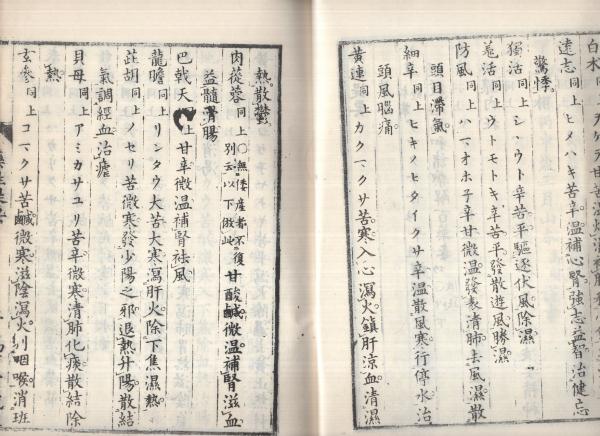 白朮同上
遠志同上ヒメハキ苦辛温補心腎強志益智治健忘
驚悸。
獨活同上シヽウト辛苦平驅逐伏風除濕。
羗活同上ウトモトキ辛苦平發散遊風勝濕。
防風同上ハマオホ子辛甘微温發表清肺去風濕散
頭目滯氣。
細辛同上ヒキノヒタイクサ辛温散風寒行停水治
頭風腦痛。
黄連同上カクマクサ苦寒入心瀉火鎮肝涼血清濕
熱。散鬱。
肉蓯蓉同上○無倭産者不復別云以下倣此甘酸鹹微温補腎滋血
益髓滑腸
巴戟天同上甘辛微温補腎祛風
龍膽同上リンタウ大苦大寒瀉肝火除下焦濕熱。
茈胡同上ノセリ苦微寒發少陽之邪退熱升陽散結
氣調經血治瘧
貝母同上アミカサユリ苦辛微寒清肺化痰散結除
熱
玄參同上コマクサ苦鹹微寒滋陰瀉火利咽喉消班